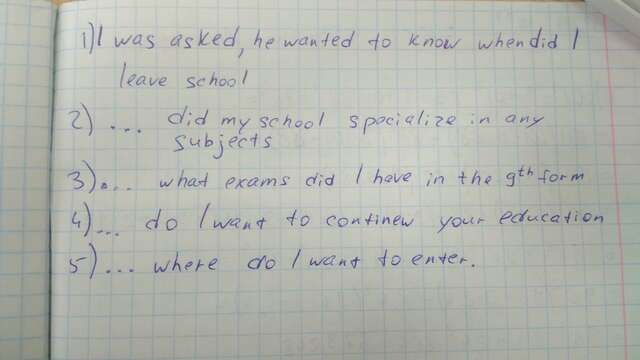 1) I was asked, he wanted to know when did I
leave school
2) ... did my school specialize in any
subjects
3) ... what exams did I have in the 9th form
4) ... do I want to continew your education
5) ... where do I want to enter.